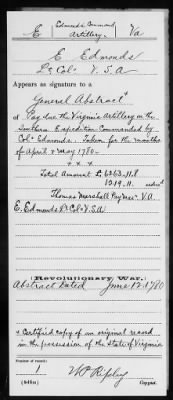 E | Edmonds' Command Artillery. | Va
E. Edmonds
Lt Col. V.S.A
Appears as signature to a
General Abstract +
of Pay due the Virginia Artillery on the
Southern Expedition Commanded by
Colo Edmonds. Taken for the months
of April & May 1780.
+ + +
Total Amount L. 6363.11.8
12.19.11.
Thomas Marshall PayMr V.A.
E. Edmonds Lt Colo V.S.A
Revolutionary War.
Abstract Dated June 12, 1780
+ Certified copy of an original record
in the possession of the State of Virginia
Number of record:
1
W. Ripley
(545a)
Copyist.